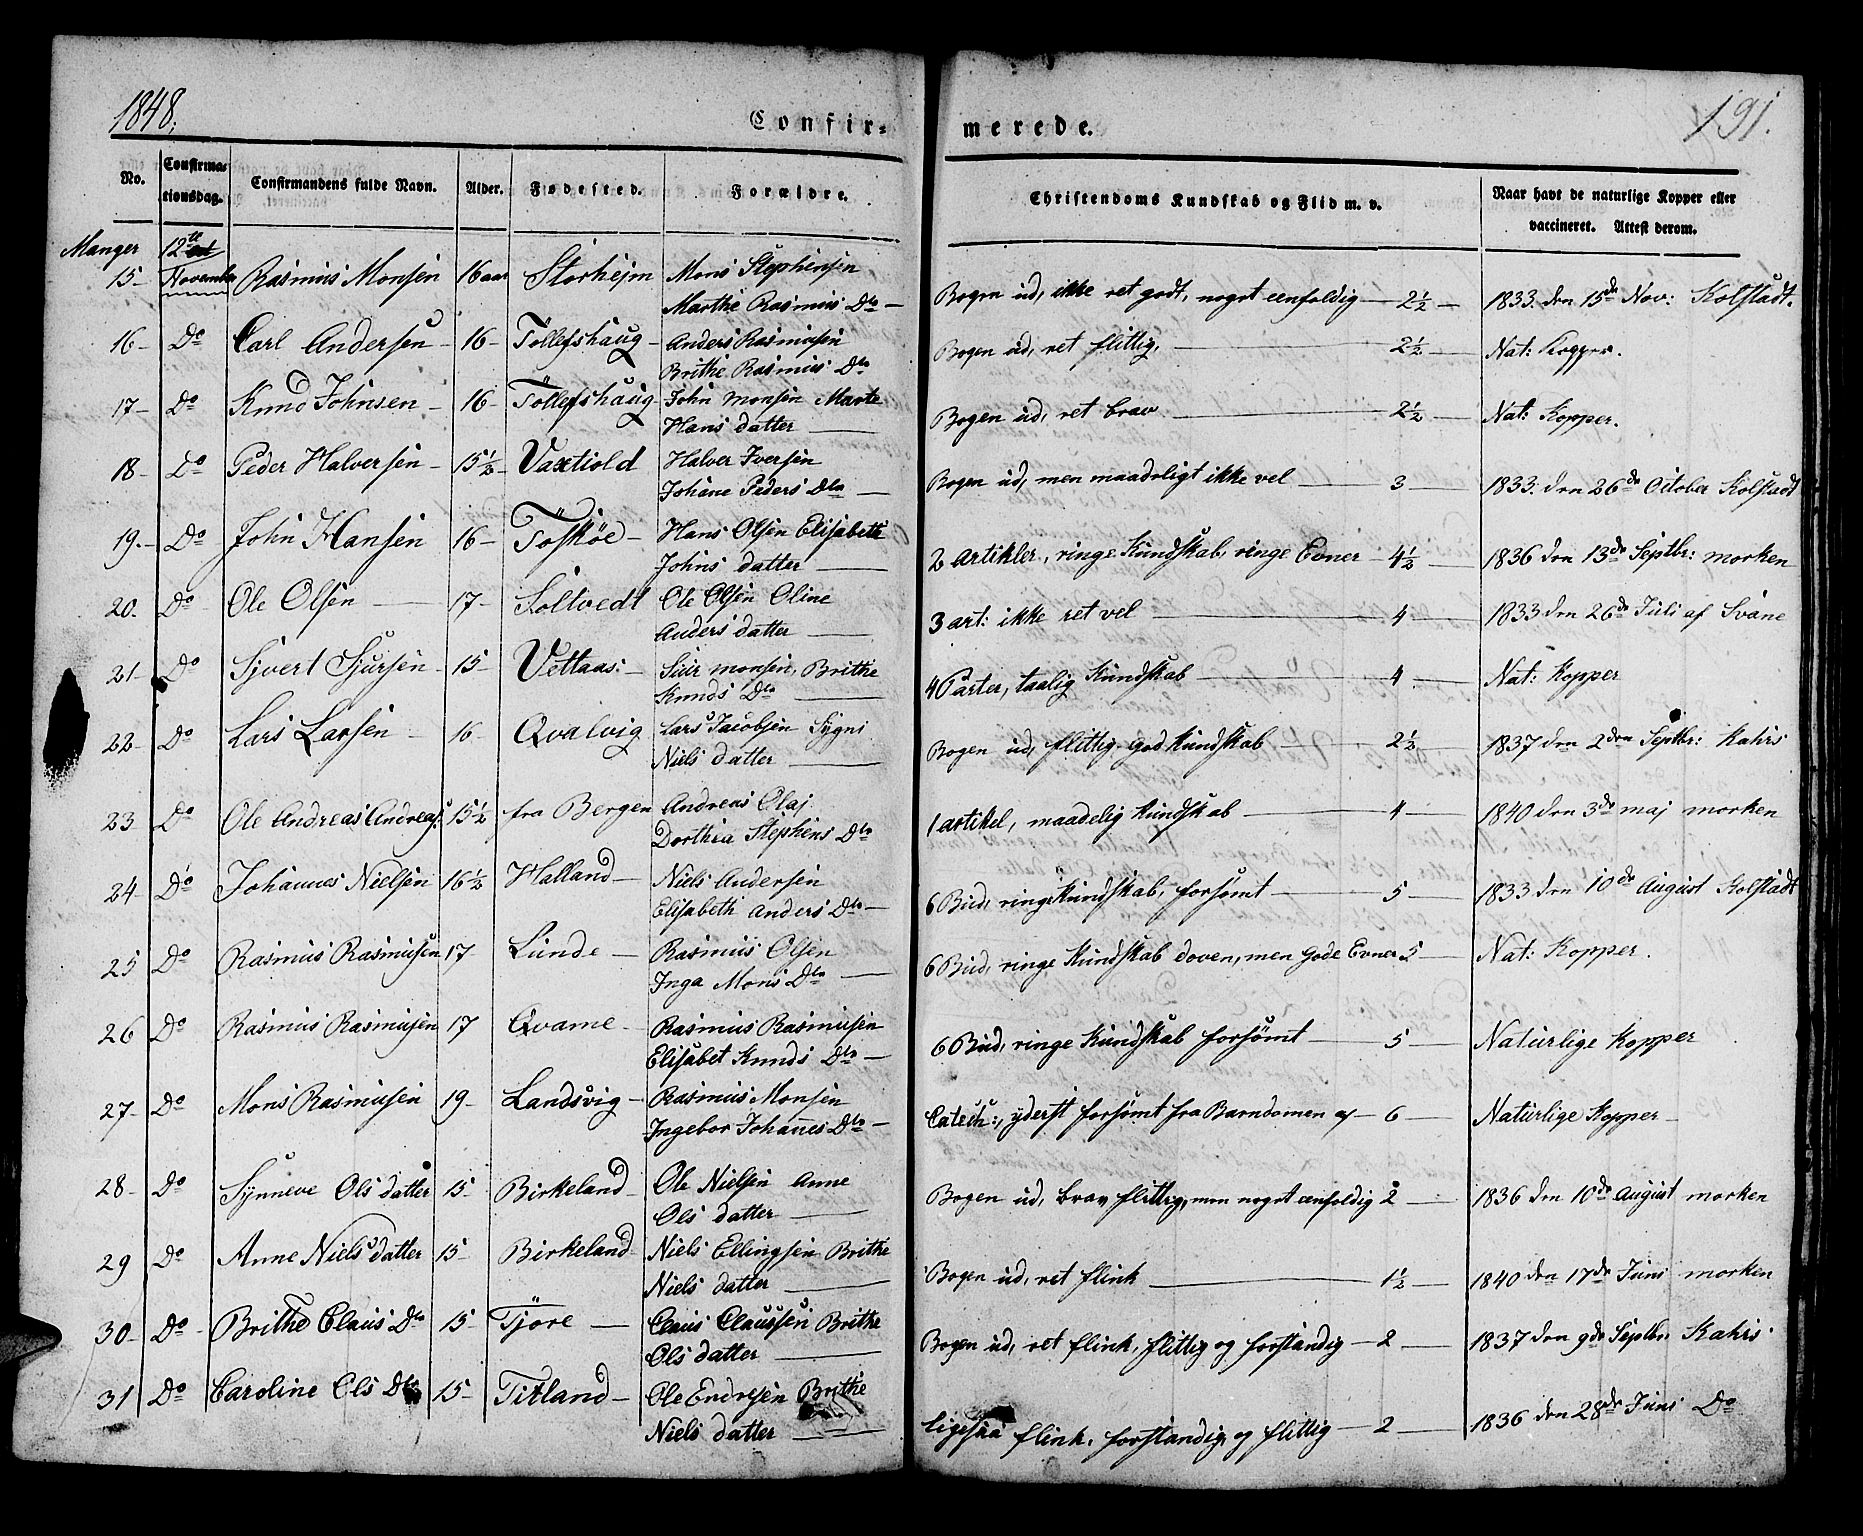 1848.
Confir-
merede.
191.
No.
Confirma-
tionsdag.
Confirmandens fulde Navn.
Alder.
Fødested.
Forældre.
Christendoms Kundskab og Flid m. v.
Naar havt de naturlige Kopper eller
vaccineret. Attest derom.
Manger 12te
15- November Rasmus Monsen 16 aar Storhejm Mons Stephensen
Marthe Rasmus Dtr
Bogen ud, ikke ret godt, noget eenfoldig — 2½ — 1833. den 15de Nov: Kolstadt.
16- Do Carl Andersen - 16- Töllefshaug - Anders Rasmusen
Brithe Rasmus Dtr
Bogen ud, ret flittig, — 2½ — Nat: Kopper.
17- Do Knud Johnsen - 16- Töllefshaug - John Monsen Marte
Hans datter —
Bogen ud, ret brav — 2½ — Nat: Kopper.
18- Do Peder Halversen - 15½- Vaxtiold Halver Iversen
Johane Peders Dtr —
Bogen ud, men maadeligt ikke vel — 3 — 1833. den 26de October Kolstadt
19.- Do John Hansen 16- Töskøe - Hans Olsen Elisabeth
Johns datter —
2 Artikler, ringe Kundskab, ringe Evner - 4½ — 1836 den 13de Septbr: morken
20. Do Ole Olsen — 17- Soltvedt Ole Olsen Oline
Anders datter —
3 art: ikke ret vel — 4 — 1833 den 26de Juli af Svane
21- Do Sjvert Sjursen - 15- Vottaas: - Siur monsen, Brithe
Knuds Dtr —
4 Parter, taalig Kundskab — 4 — Nat: Kopper
22- Do Lars Larsen - 16- Qvalvig Lars Jacobsen Sygni
Niels datter —
Bogen ud, flittig god Kundskab — 2½ — 1837 den 2den Septbr: Kahrs
23 Do Ole Andreas Andreas: 15½ fra Bergen Andreas Olaj
Dorthea Stephens Dtr
1 artikel, maadelig Kundskab — 4 — 1840 den 3de maj morken
24 Do Johannes Nielsen 16½ Halland - Niels Andersen
Elisabeth Anders Dtr -
6 Bud, ringe Kundskab, forsömt — 5 — 1833 den 10de August Kolstadt
25 Do Rasmus Rasmusen 17 Lunde - Rasmus Olsen
Inga Mons Dtr —
6 Bud, ringe Kundskab doven, men gode Evner 5 — Nat: Kopper.
26 Do Rasmus Rasmusen 17 Qvame - Rasmus Rasmusen
Elisabet Knuds Dtr -
6 Bud, ringe Kundskab forsömt — 5 — Naturlige Kopper
27- Do Mons Rasmusen 19- Landsvig - Rasmus Monsen
Ingebor Johanes Dtr -
Catech:, yderst forsömt fra Barndomen af - 6 — Naturlige Kopper -
28- Do Synneve Ols datter 15- Birkeland - Ole Nielsen Anne
Ols datter —
Bogen ud, brav flittig, men noget eenfoldig 2 — 1836 den 10de August morken
29 Do Anne Niels datter 15- Birkeland Niels Ellingsen Brithe
Niels datter —
Bogen ud, ret flink — 1½ — 1840 den 17de Juni morken
30- Do - Brithe Claus Dtr 15 Tjore — Claus Claussen Brithe
Ols datter —
Bogen ud, ret flink, flittig og forstandig — 2 — 1837 den 9de Septbr: Kahrs
31 Do Caroline Ols Dtr 15- Titland - Ole Endresen Brithe
Niels datter —
ligesaa flink, forstandig og flittig — 2 — 1836 den 28de Juni Do